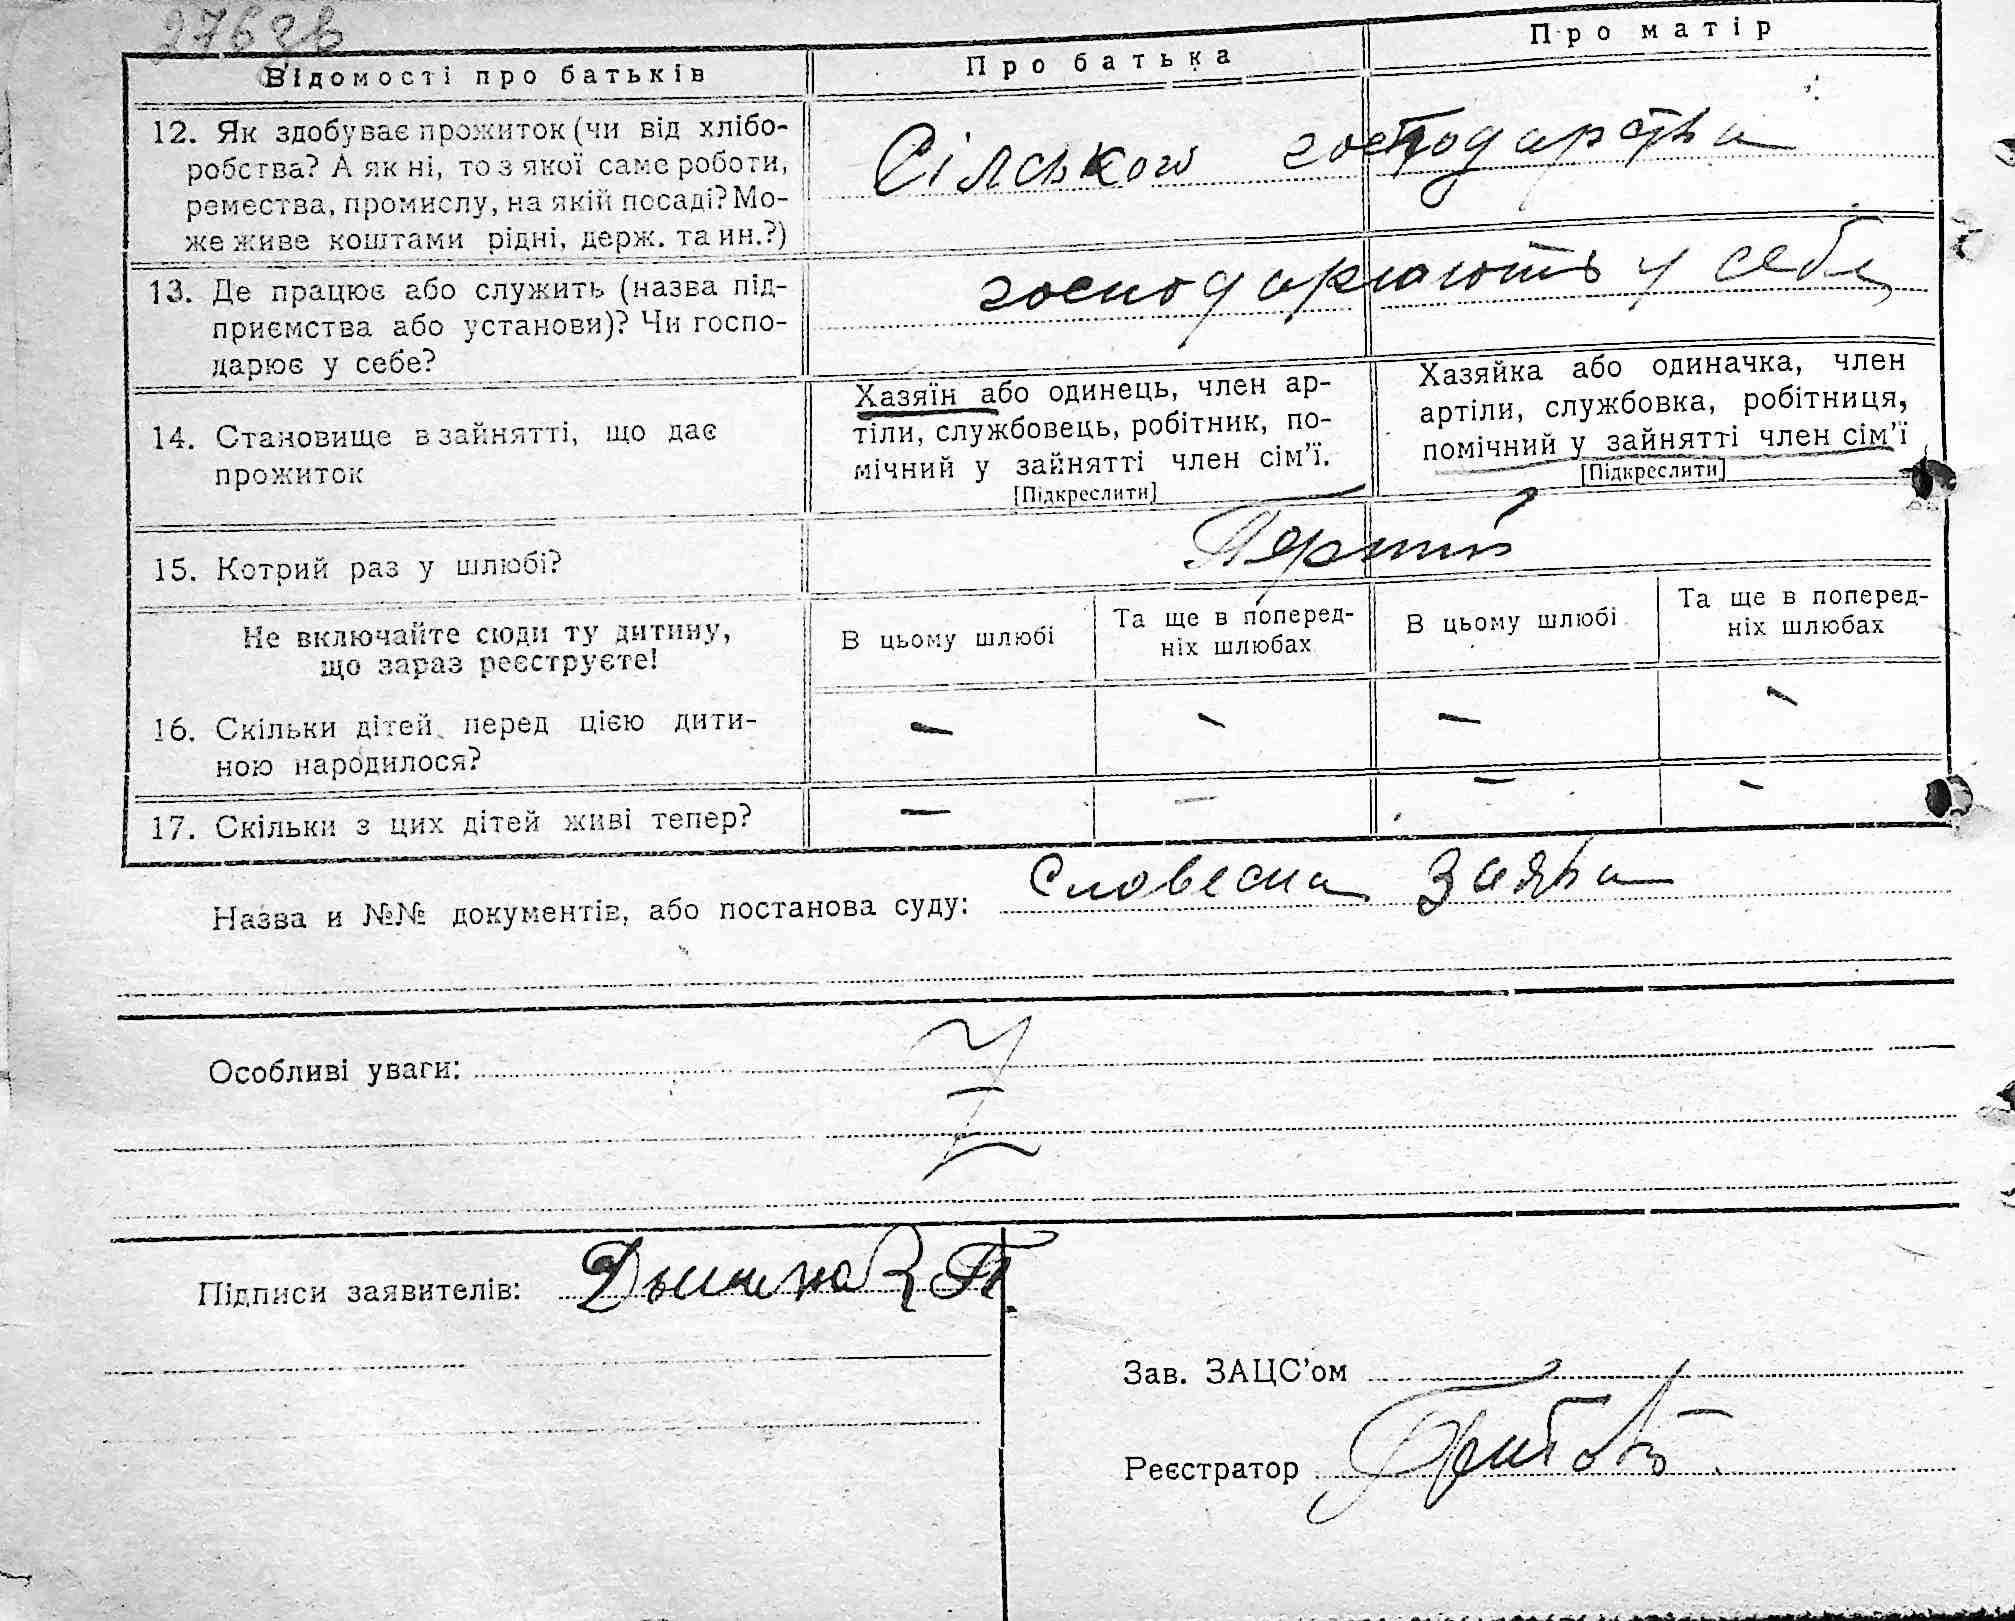 276 зв
Відомості про батьків
Про батька
Про матір
12. Як здобуває прожиток (чи від хлібо-
робства? А як ні, то з якої саме роботи,
ремества, промислу, на якій посаді? Мо-
же живе коштами рідні, держ. та ин.?)
Сілського господарства
13. Де працює або служить (назва під-
приємства або установи)? Чи госпо-
дарює у себе?
господарюють у себе
14. Становище в зайнятті, що дає
прожиток
Хазяїн або одинець, член ар-
тіли, службовець, робітник, по-
мічний у зайнятті член сім'ї.
[Підкреслити]
Хазяйка або одиначка, член
артіли, службовка, робітниця,
помічний у зайнятті член сім'ї
[Підкреслити]
15. Котрий раз у шлюбі?
Перший
Не включайте сюди ту дитину,
що зараз реєструєте!
В цьому шлюбі
Та ще в поперед-
ніх шлюбах
В цьому шлюбі
Та ще в поперед-
ніх шлюбах
16. Скільки дітей перед цією дити-
ною народилося?
– – – –
17. Скільки з цих дітей живі тепер?
– – – –
Назва и №№ документів, або постанова суду: Словесна Заява
Особливі уваги:
Підписи заявителів:
Зав. ЗАЦС'ом
Реєстратор